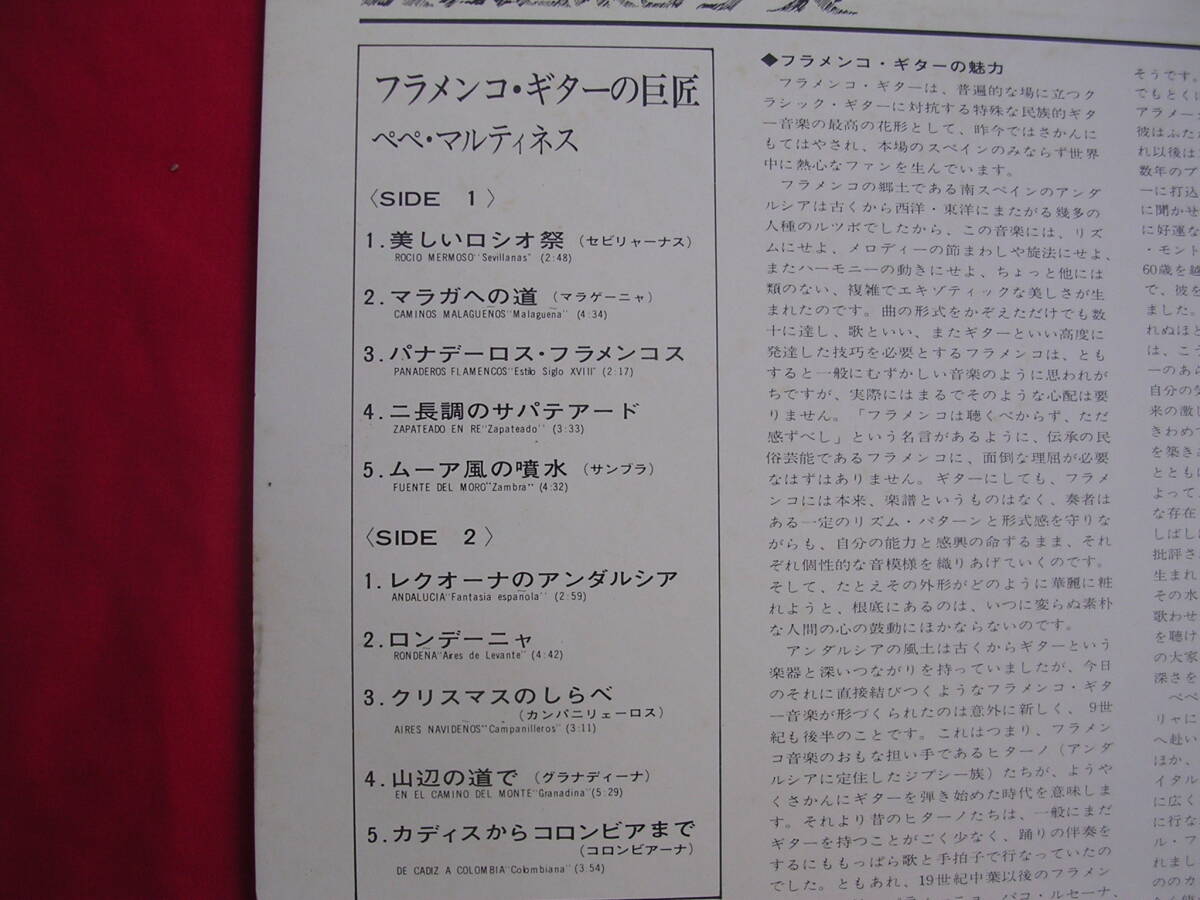 フラメンコ・ギターの巨匠
ペペ・マルティネス
〈SIDE 1〉
1. 美しいロシオ祭 (セビリャーナス)
ROCIO MERMOSO"Sevillanas" (2:48)
2. マラガへの道 (マラゲーニャ)
CAMINOS MALAGUEÑOS"Malagueña" (4:34)
3. パナデーロス・フラメンコス
PANADEROS FLAMENCOS"Estilo Siglo XVIII" (2:17)
4. ニ長調のサパテアード
ZAPATEADO EN RE"Zapateado" (3:33)
5. ムーア風の噴水 (サンブラ)
FUENTE DEL MORO"Zambra" (4:32)
〈SIDE 2〉
1. レクオーナのアンダルシア
ANDALUCIA"Fantasia española" (2:59)
2. ロンデーニャ
RONDEÑA"Aires de Levante" (4:42)
3. クリスマスのしらべ
(カンパニリェーロス)
AIRES NAVIDEÑOS"Campanilleros" (3:11)
4. 山辺の道で (グラナディーナ)
EN EL CAMINO DEL MONTE"Granadina" (5:29)
5. カディスからコロンビアまで
(コロンビアーナ)
DE CADIZ A COLOMBIA"Colombiana" (3:54)
◆フラメンコ・ギターの魅力
フラメンコ・ギターは、普遍的な場に立つク
ラシック・ギターに対抗する特殊な民族的ギタ
ー音楽の最高の花形として、昨今ではさかんに
もてはやされ、本場のスペインのみならず世界
中に熱心なファンを生んでいます。
フラメンコの郷土である南スペインのアンダ
ルシアは古くから西洋・東洋にまたがる幾多の
人種のルツボでしたから、この音楽には、リズ
ムにせよ、メロディーの節まわしや旋法にせよ、
またハーモニーの動きにせよ、ちょっと他には
類のない、複雑でエキゾティックな美しさが生
まれたのです。曲の形式をかぞえただけでも数
十に達し、歌といい、またギターといい高度に
発達した技巧を必要とするフラメンコは、とも
すると一般にむずかしい音楽のように思われが
ちですが、実際にはまるでそのような心配は要
りません。「フラメンコは聴くべからず、ただ
感ずべし」という名言があるように、伝承の民
俗芸能であるフラメンコに、面倒な理屈が必要
なはずはありません。ギターにしても、フラメ
ンコには本来、楽譜というものはなく、奏者は
ある一定のリズム・パターンと形式感を守りな
がらも、自分の能力と感興の命ずるまま、それ
ぞれ個性的な音模様を織りあげていくのです。
そして、たとえその外形がどのように華麗に粧
れようと、根底にあるのは、いつに変らぬ素朴
な人間の心の鼓動にほかならないのです。
アンダルシアの風土は古くからギターという
楽器と深いつながりを持っていましたが、今日
のそれに直接結びつくようなフラメンコ・ギタ
ー音楽が形づくられたのは意外に新しく、9世
紀も後半のことです。これはつまり、フラメン
コ音楽のおもな担い手であるヒターノ(アンダ
ルシアに定住したジプシー族)たちが、ようや
くさかんにギターを弾き始めた時代を意味しま
す。それより昔のヒターノたちは、一般にまだ
ギターを持つことがごく少なく、踊りの伴奏を
するにももっぱら歌と手拍子で行なっていたの
でした。ともあれ、19世紀中葉以後のフラメン
パコ・ルセーナ、
そうです。
でもとくに
アラメー
彼はふた
れ以後は
数年のブ
ーに打込
に聞かせ
に好運な
・モント
60歳を越
で、彼を
ました。
れぬほと
は、こう
ーのあら
自分の
来の激し
きわめて
を築き
ととも
よって
な存在
しばし
批評さ
生まれ
その水
歌わせ
を聴け
の大家
深さを
ペペ
リャに
へ赴い
ほか、
イタル
に広く
に行な
ル・フ
れまし
ののカ